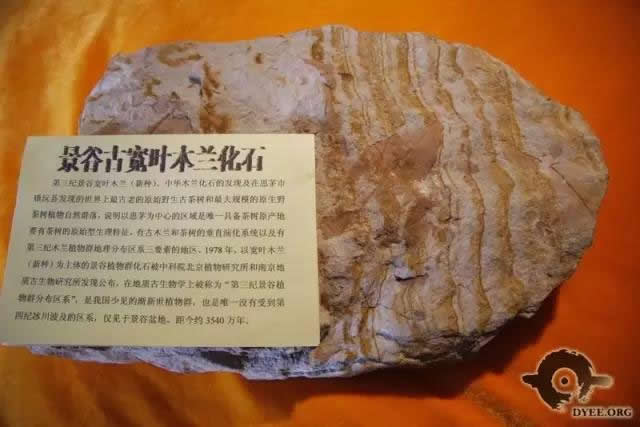 景谷古宽叶木兰化石
第三纪景谷宽叶木兰（新种），中华木兰化石的发现及在思茅市
镇沅县发现的世界上最古老的原始野生古茶树和最大规模的原生野
茶树植物自然群落，说明以思茅为中心的区域是唯一具备茶树原产地
要有茶树的原始型生理特征，有古木兰和茶树的垂直演化系统以及有
第三纪木兰植物群地理分布区系三要素的地区。1978年，以宽叶木兰
（新种）为主体的景谷植物群化石被中科院北京植物研究所和南京地
质古生物研究所发现公布，在地质古生物学上被称为“第三纪景谷植
物群分布区系”，是我国少见的渐新世植物群，也是唯一没有受到第
四纪冰川波及的区系，仅见于景谷盆地。距今约3540万年。
DYEE.ORG